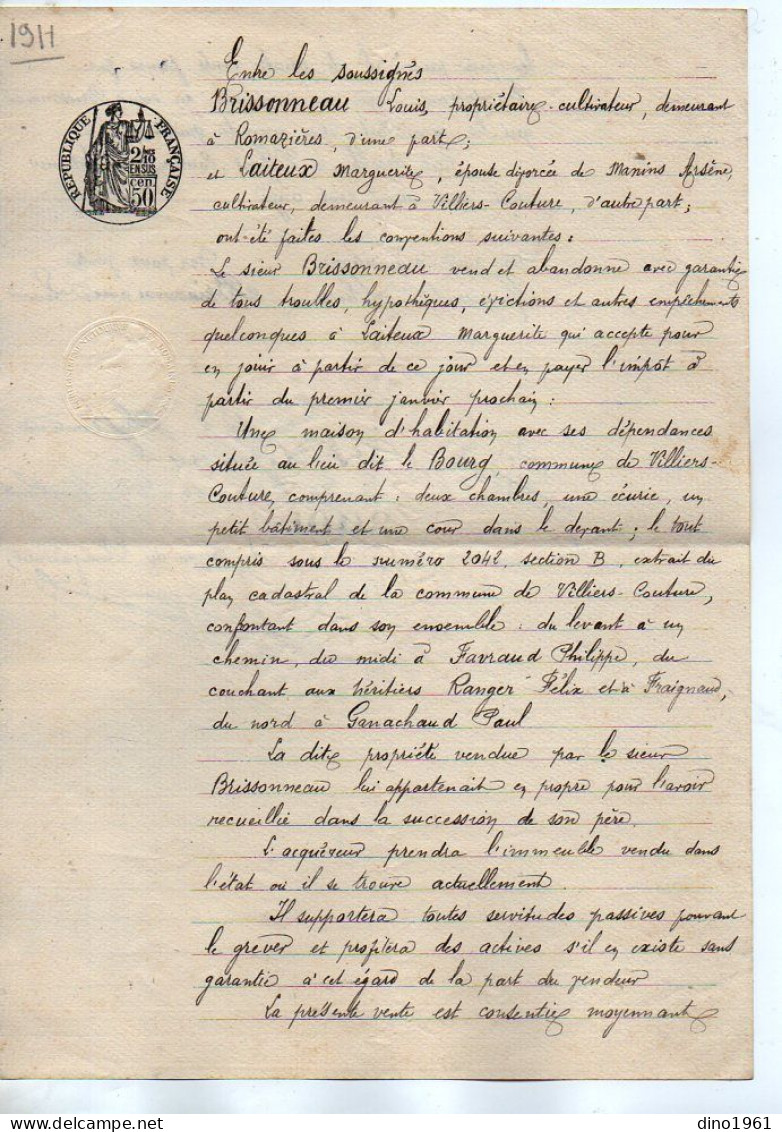 1911
Entre les soussignés
Brissonneau Louis, propriétaire-cultivateur, demeurant
à Romazières, d'une part;
et Laiteux Marguerite, épouse divorcée de Manins Arsène,
cultivateur, demeurant à Villiers-Couture, d'autre part;
ont été faites les conventions suivantes:
Le sieur Brissonneau vend et abandonne avec garantie
de tous troubles, hypothèques, évictions et autres empêchements
quelconques à Laiteux Marguerite qui accepte pour
en jouir à partir de ce jour et en payer l'impôt à
partir du premier janvier prochain:
Une maison d'habitation avec ses dépendances
située au lieu dit le Bourg, commune de Villiers-
Couture, comprenant: deux chambres, une écurie, un
petit bâtiment et une cour dans le devant; le tout
compris sous le numéro 2042, section B, extrait du
plan cadastral de la commune de Villiers-Couture,
confontant dans son ensemble: du levant à un
chemin, du midi à Favraud Philippe, du
couchant aux héritiers Ranger Félix et à Fraignaud,
du nord à Ganachaud Paul
La dite propriété vendue par le sieur
Brissonneau lui appartenait en propre pour l'avoir
recueillie dans la succession de son père.
L'acquéreur prendra l'immeuble vendu dans
l'état où il se trouve actuellement.
Il supportera toutes servitudes passives pouvant
le grever et profitera des actives s'il en existe sans
garantie à cet égard de la part du vendeur
La présente vente est consentie moyennant
RÉPUBLIQUE FRANÇAISE
2/10
EN SUS
cen.
50
dino1961